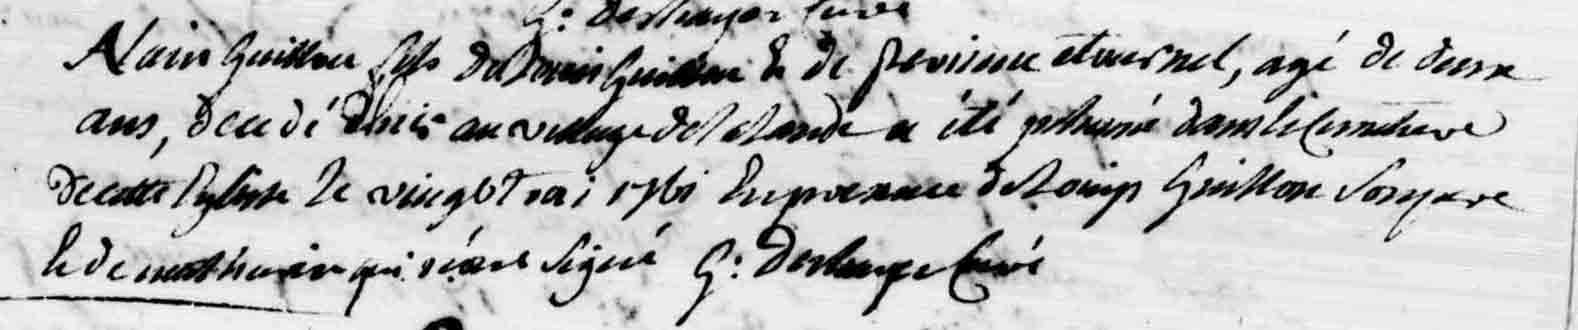 G: Deslanges Curé
Alain Guillou fils de Louis Guillou & de perrinne, agé de deux
ans, decedé hier au village de la lande a été inhumé dans le Cimetiere
de cette Eglise le vingt mai 1761 En presence de Louis Guillou Son pere
& de mathurin qui signé G: Deslanges Curé